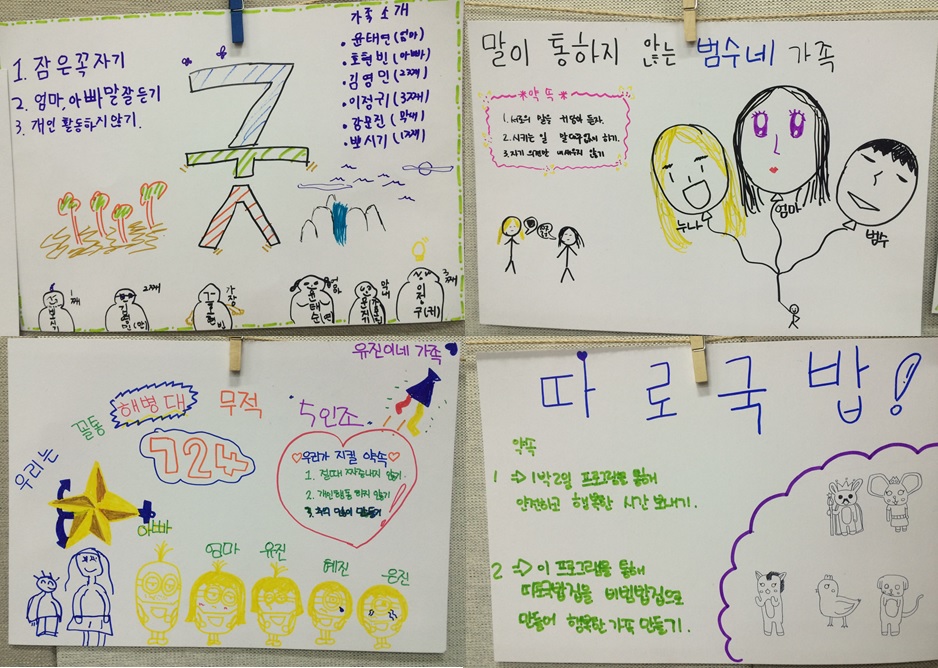 1. 잠은 꼭 자기
2. 엄마, 아빠 말 잘 듣기
3. 개인 활동하지 않기.
구족
가족 소개
• 윤태연 (엄마)
• 호현빈 (아빠)
• 김영민 (2째)
• 이정귀 (3째)
• 강문진 (막내)
• 뽀시기 (1째)
1째
2째
가장
엄마
막내
3째
말이 통하지 않는 범수네 가족
*약속*
1. 서로의 말을 귀담아 듣자.
2. 시키는 일 말대꾸없이 하기.
3. 자기 의견만 내세우지 않기
누나
엄마
범수
유진이네 가족
우리는 꼴통 해병대 무적
724
5인조
우리가 지킬 약속
1. 절대 짜증내지 않기
2. 개인행동 하지 않기
3. 추억 많이 만들기
아빠
엄마
유진
혜진
은진
따로국밥!
약속
1 => 1박2일 프로그램을 통해
안전하고 행복한 시간 보내기.
2 => 이 프로그램을 통해
따로국밥집을 비빔밥집으로
만들어 행복한 가족 만들기.